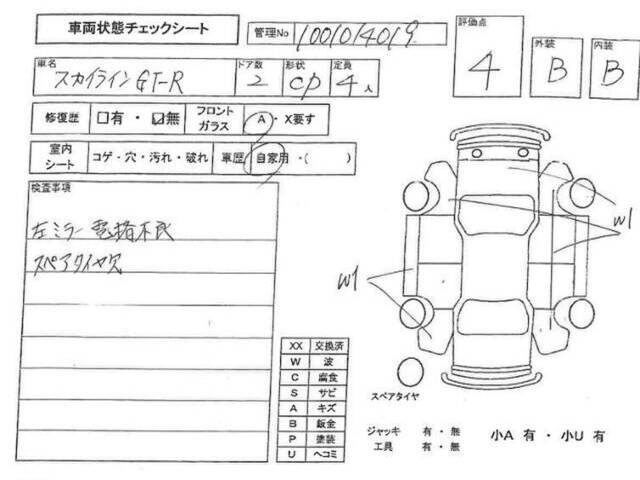 車両状態チェックシート
管理No 1001014019
評価点 4
外装 B
内装 B
車名 スカイラインGT-R
ドア数 2
形状 CP
定員 4人
修復歴 □有・☑無
フロントガラス A・X要す
室内シート コゲ・穴・汚れ・破れ
車歴 自家用・( )
検査事項
左ミラー電格不良
スペアタイヤ欠
W1
W1
XX 交換済
W 波
C 腐食
S サビ
A キズ
B 鈑金
P 塗装
U ヘコミ
スペアタイヤ
ジャッキ 有・無
工具 有・無
小A 有・小U 有